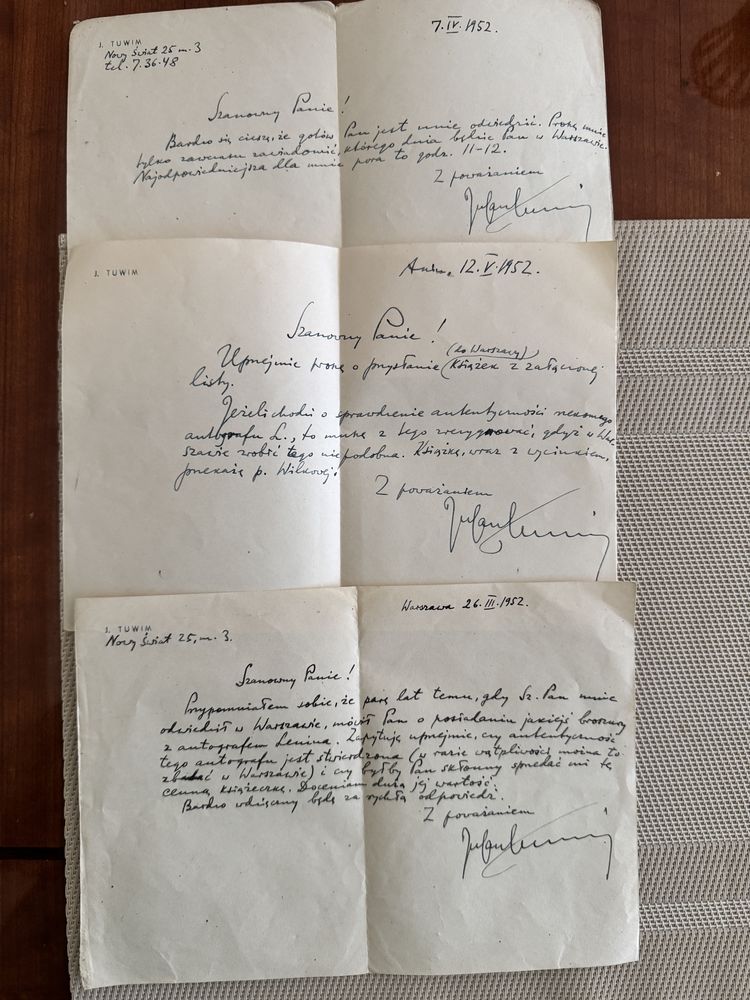 J. TUWIM
Nowy Świat 25 m. 3
tel. 7.36.48
7.IV.1952.
Szanowny Panie!
Bardzo się cieszę, że gotów Pan jest mnie odwiedzić. Proszę mnie
tylko zawczasu zawiadomić, którego dnia będzie Pan w Warszawie.
Najodpowiedniejsza dla mnie pora to godz. 11-12.
Z poważaniem
J. TUWIM
12.V.1952.
Szanowny Panie!
(do Warszawy)
Uprzejmie proszę o przysłanie książek z załączonej
listy.
Jeżeli chodzi o sprawdzenie autentyczności
autografu L., to muszę z tego zrezygnować, gdyż w War-
szawie zrobić tego niepodobna. Książkę, wraz z wycinkiem,
przekażę p. Wilkowej.
Z poważaniem
J. TUWIM
Nowy Świat 25, m. 3.
Warszawa 26.III.1952.
Szanowny Panie!
Przypomniałem sobie, że parę lat temu, gdy Sz. Pan mnie
odwiedził w Warszawie, mówił Pan o posiadaniu jakiejś broszury
z autografem Lenina. Zapytuję uprzejmie, czy autentyczność
tego autografu jest stwierdzona (w razie wątpliwości można to
zbadać w Warszawie) i czy byłby Pan skłonny sprzedać mi tę
cenną książeczkę. Doceniam dużą jej wartość.
Bardzo wdzięczny będę za rychłą odpowiedź.
Z poważaniem